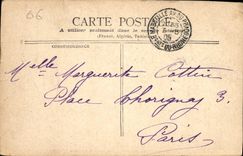 06
CARTE POSTALE
A utiliser seulement dans le
(France, Algérie, Tunisie)
CORRESPONDANCE
Melle Marguerite Cottin
Place Thorigny 3.
Paris